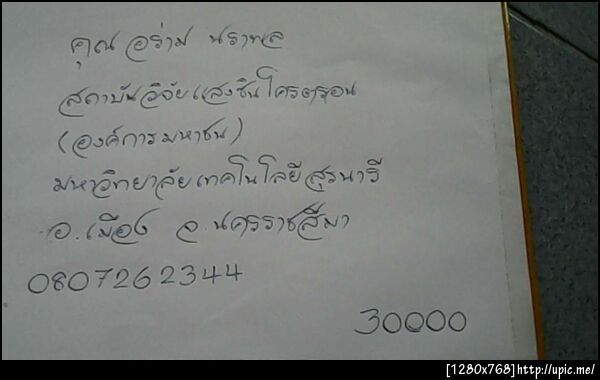 คุณ อร่าม นราพล
สถาบันวิจัยแสงซินโครตรอน
(องค์การมหาชน)
มหาวิทยาลัยเทคโนโลยีสุรนารี
อ.เมือง จ.นครราชสีมา
0807262344
30000
[1280x768]http://upic.me/